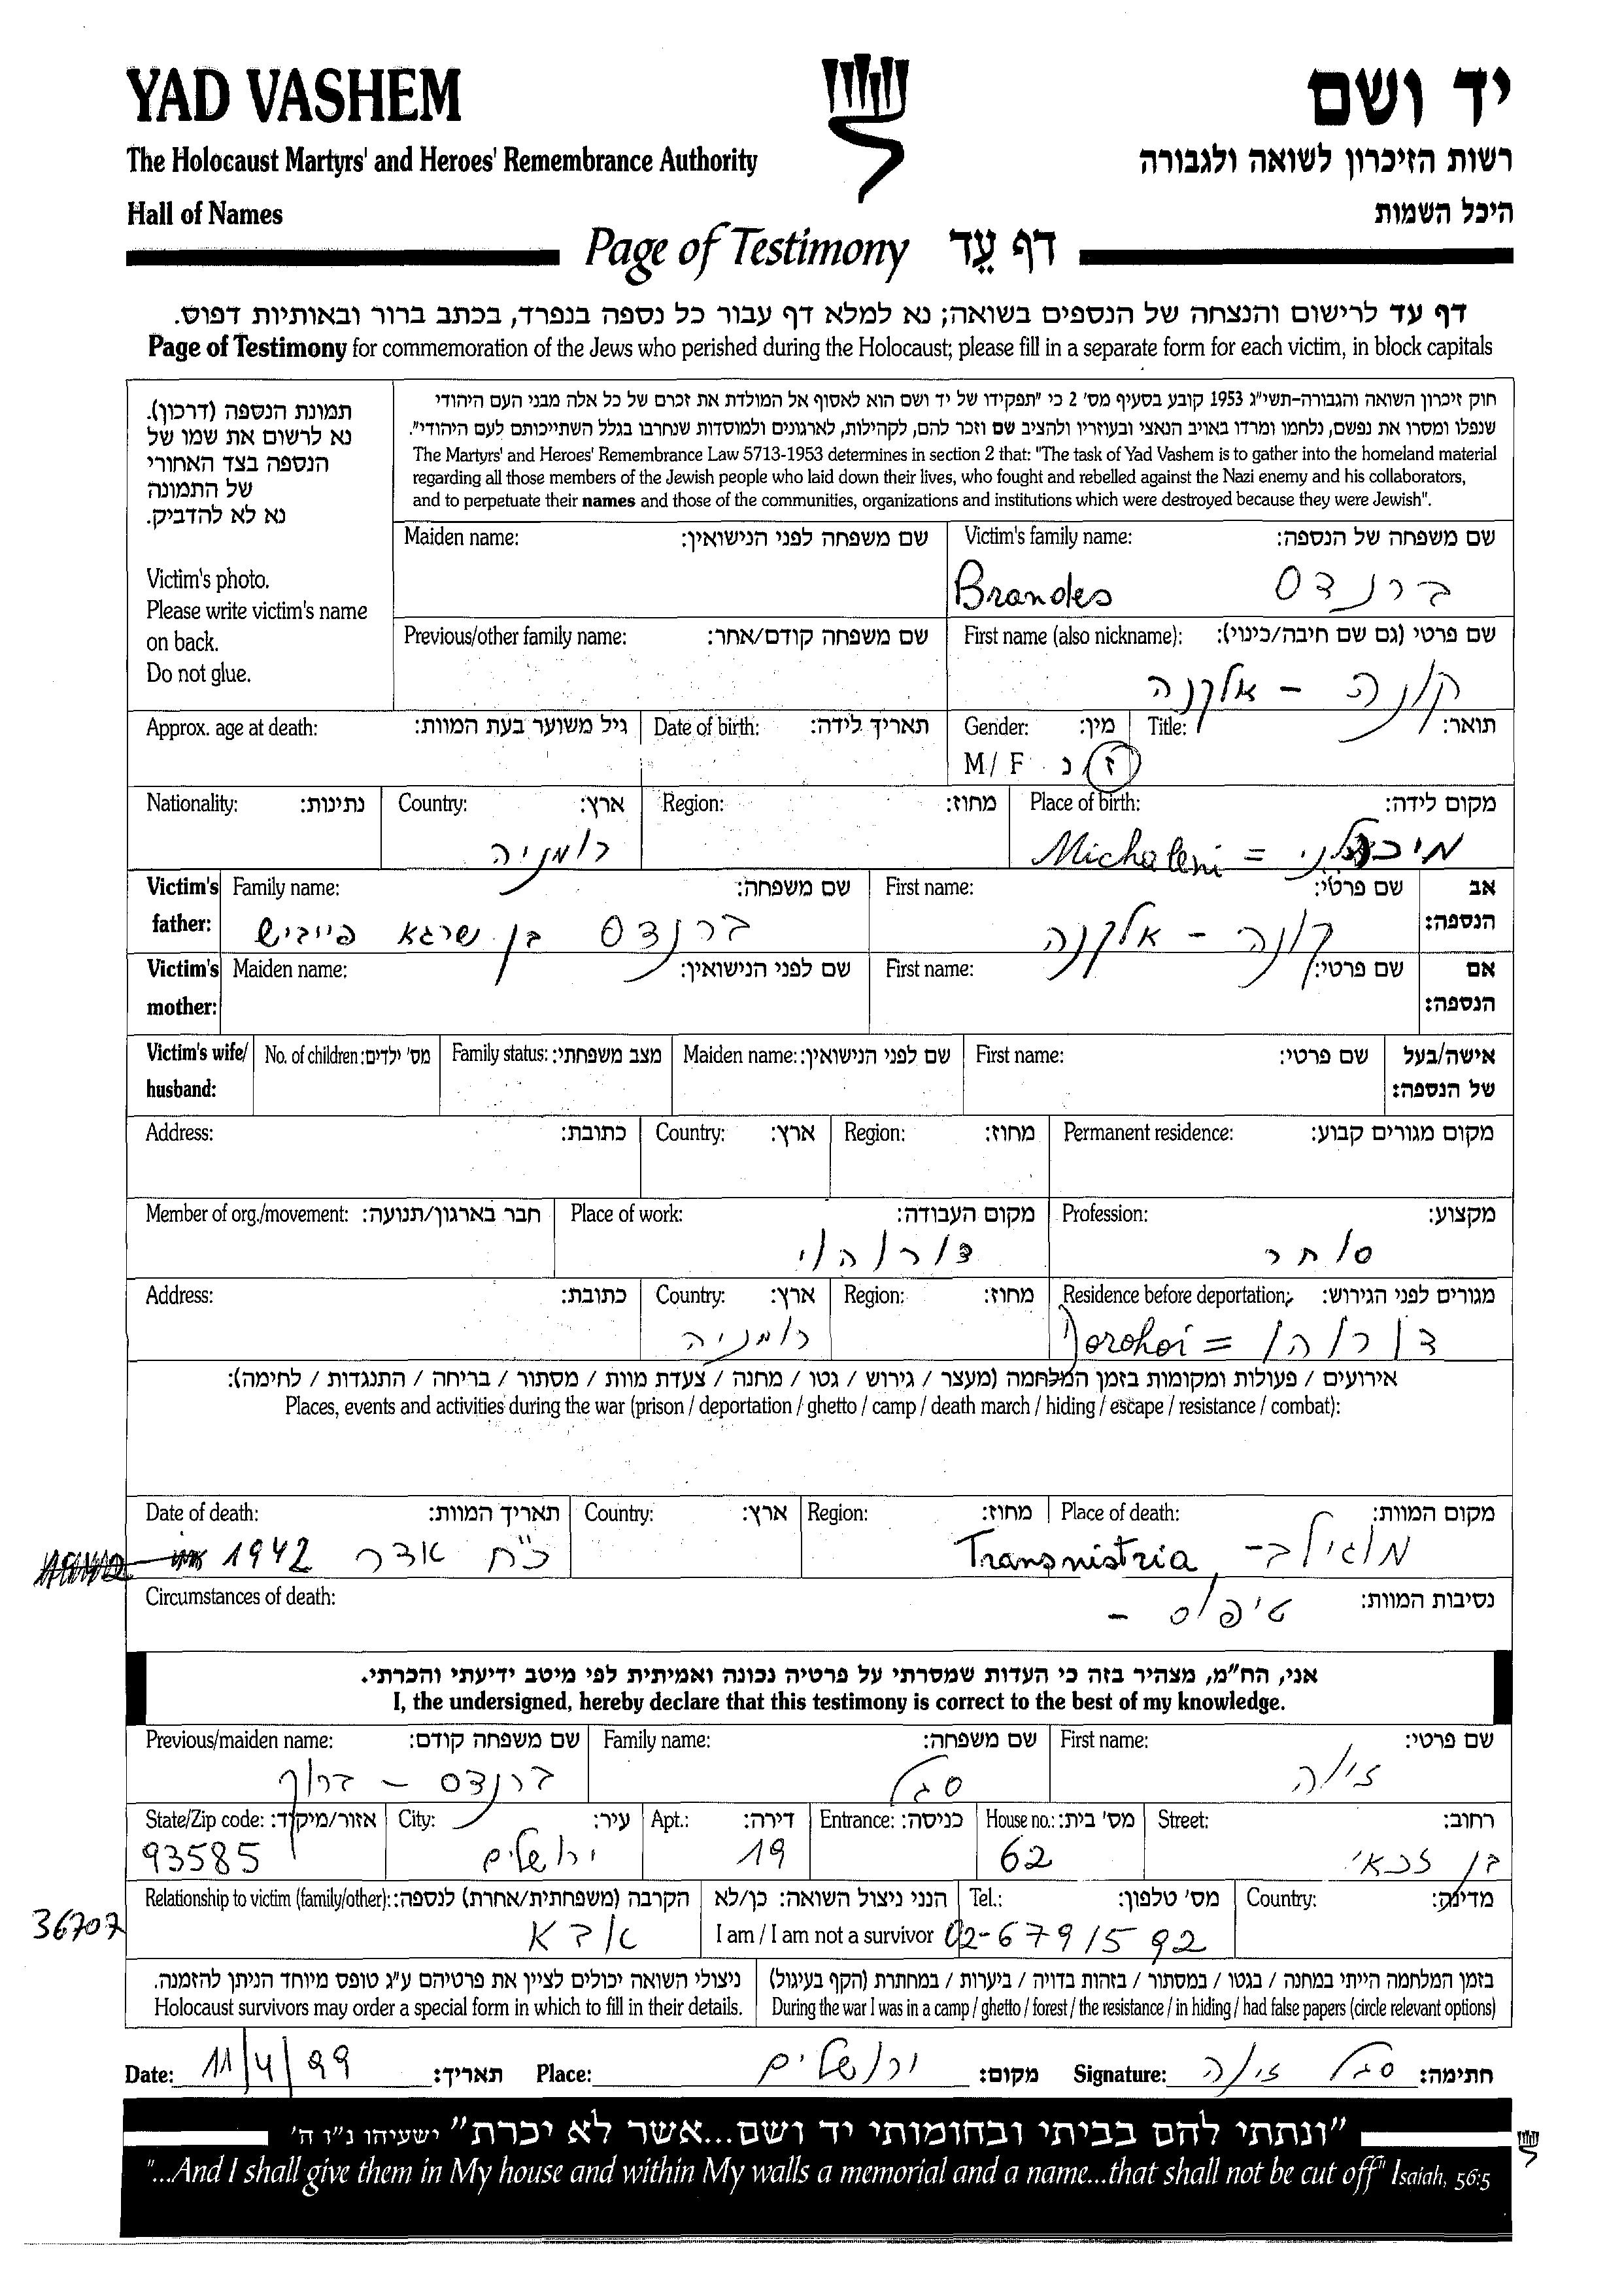 YAD VASHEM
יד ושם
The Holocaust Martyrs' and Heroes' Remembrance Authority
רשות הזיכרון לשואה ולגבורה
Hall of Names
היכל השמות
Page of Testimony דף עֵד
דף עד לרישום והנצחה של הנספים בשואה; נא למלא דף עבור כל נספה בנפרד, בכתב ברור ובאותיות דפוס.
Page of Testimony for commemoration of the Jews who perished during the Holocaust; please fill in a separate form for each victim, in block capitals
תמונת הנספה (דרכון).
נא לרשום את שמו של
הנספה בצד האחורי
של התמונה
נא לא להדביק.
Victim's photo.
Please write victim's name
on back.
Do not glue.
חוק זיכרון השואה והגבורה-תשי"ג 1953 קובע בסעיף מס' 2 כי "תפקידו של יד ושם הוא לאסוף אל המולדת את זכרם של כל אלה מבני העם היהודי
שנפלו ומסרו את נפשם, נלחמו ומרדו באויב הנאצי ובעוזריו ולהציב שם וזכר להם, לקהילות, לארגונים ולמוסדות שנחרבו בגלל השתייכותם לעם היהודי".
The Martyrs' and Heroes' Remembrance Law 5713-1953 determines in section 2 that: "The task of Yad Vashem is to gather into the homeland material
regarding all those members of the Jewish people who laid down their lives, who fought and rebelled against the Nazi enemy and his collaborators,
and to perpetuate their names and those of the communities, organizations and institutions which were destroyed because they were Jewish".
Maiden name: שם משפחה לפני הנישואין:
Victim's family name: שם משפחה של הנספה:
Brandes ברנדס
Previous/other family name: שם משפחה קודם/אחר:
First name (also nickname): שם פרטי (גם שם חיבה/כינוי):
קונה - אלקנה
Approx. age at death: גיל משוער בעת המוות:
Date of birth: תאריך לידה:
Gender: מין:
M / F נ / ז
Title: תואר:
Nationality: נתינות:
Country: ארץ:
רומניה
Region: מחוז:
Place of birth: מקום לידה:
Michaleni =
Victim's father: אב הנספה:
Family name: שם משפחה:
ברנדס בן שרגא פייביש
First name: שם פרטי:
קונה - אלקנה
Victim's mother: אם הנספה:
Maiden name: שם לפני הנישואין:
First name: שם פרטי:
Victim's wife/ husband: אישה/בעל של הנספה:
No. of children: מס' ילדים:
Family status: מצב משפחתי:
Maiden name: שם לפני הנישואין:
First name: שם פרטי:
Address: כתובת:
Country: ארץ:
Region: מחוז:
Permanent residence: מקום מגורים קבוע:
Member of org./movement: חבר בארגון/תנועה:
Place of work: מקום העבודה:
דורוהוי
Profession: מקצוע:
סוחר
Address: כתובת:
Country: ארץ:
רומניה
Region: מחוז:
Residence before deportation: מגורים לפני הגירוש:
Dorohoi = דורוהוי
אירועים / פעולות ומקומות בזמן המלחמה (מעצר / גירוש / גטו / מחנה / צעדת מוות / מסתור / בריחה / התנגדות / לחימה):
Places, events and activities during the war (prison / deportation / ghetto / camp / death march / hiding / escape / resistance / combat):
Date of death: תאריך המוות:
1942 כ"ח אדר
Country: ארץ:
Region: מחוז:
Place of death: מקום המוות:
Transnistria מוגילב-
Circumstances of death: נסיבות המוות:
טיפוס -
אני, הח"מ, מצהיר בזה כי העדות שמסרתי על פרטיה נכונה ואמיתית לפי מיטב ידיעתי והכרתי.
I, the undersigned, hereby declare that this testimony is correct to the best of my knowledge.
Previous/maiden name: שם משפחה קודם:
ברנדס -
Family name: שם משפחה:
סגל
First name: שם פרטי:
State/Zip code: אזור/מיקוד:
93585
City: עיר:
ירושלים
Apt.: דירה:
19
Entrance: כניסה:
House no.: מס' בית:
62
Street: רחוב:
בן זכאי
Relationship to victim (family/other): הקרבה (משפחתית/אחרת) לנספה:
אבא
הנני ניצול השואה: כן/לא
I am / I am not a survivor
Tel.: מס' טלפון:
02-6791592
Country: מדינה:
36707
ניצולי השואה יכולים לציין את פרטיהם ע"ג טופס מיוחד הניתן להזמנה.
Holocaust survivors may order a special form in which to fill in their details.
בזמן המלחמה הייתי במחנה / בגטו / במסתור / בזהות בדויה / ביערות / במחתרת (הקף בעיגול)
During the war I was in a camp / ghetto / forest / the resistance / in hiding / had false papers (circle relevant options)
Date: 11/4/99 תאריך:
Place: ירושלים מקום:
Signature: סגל חתימה:
"ונתתי להם בביתי ובחומותי יד ושם...אשר לא יכרת" ישעיהו נ"ו ה'
"...And I shall give them in My house and within My walls a memorial and a name...that shall not be cut off" Isaiah, 56:5